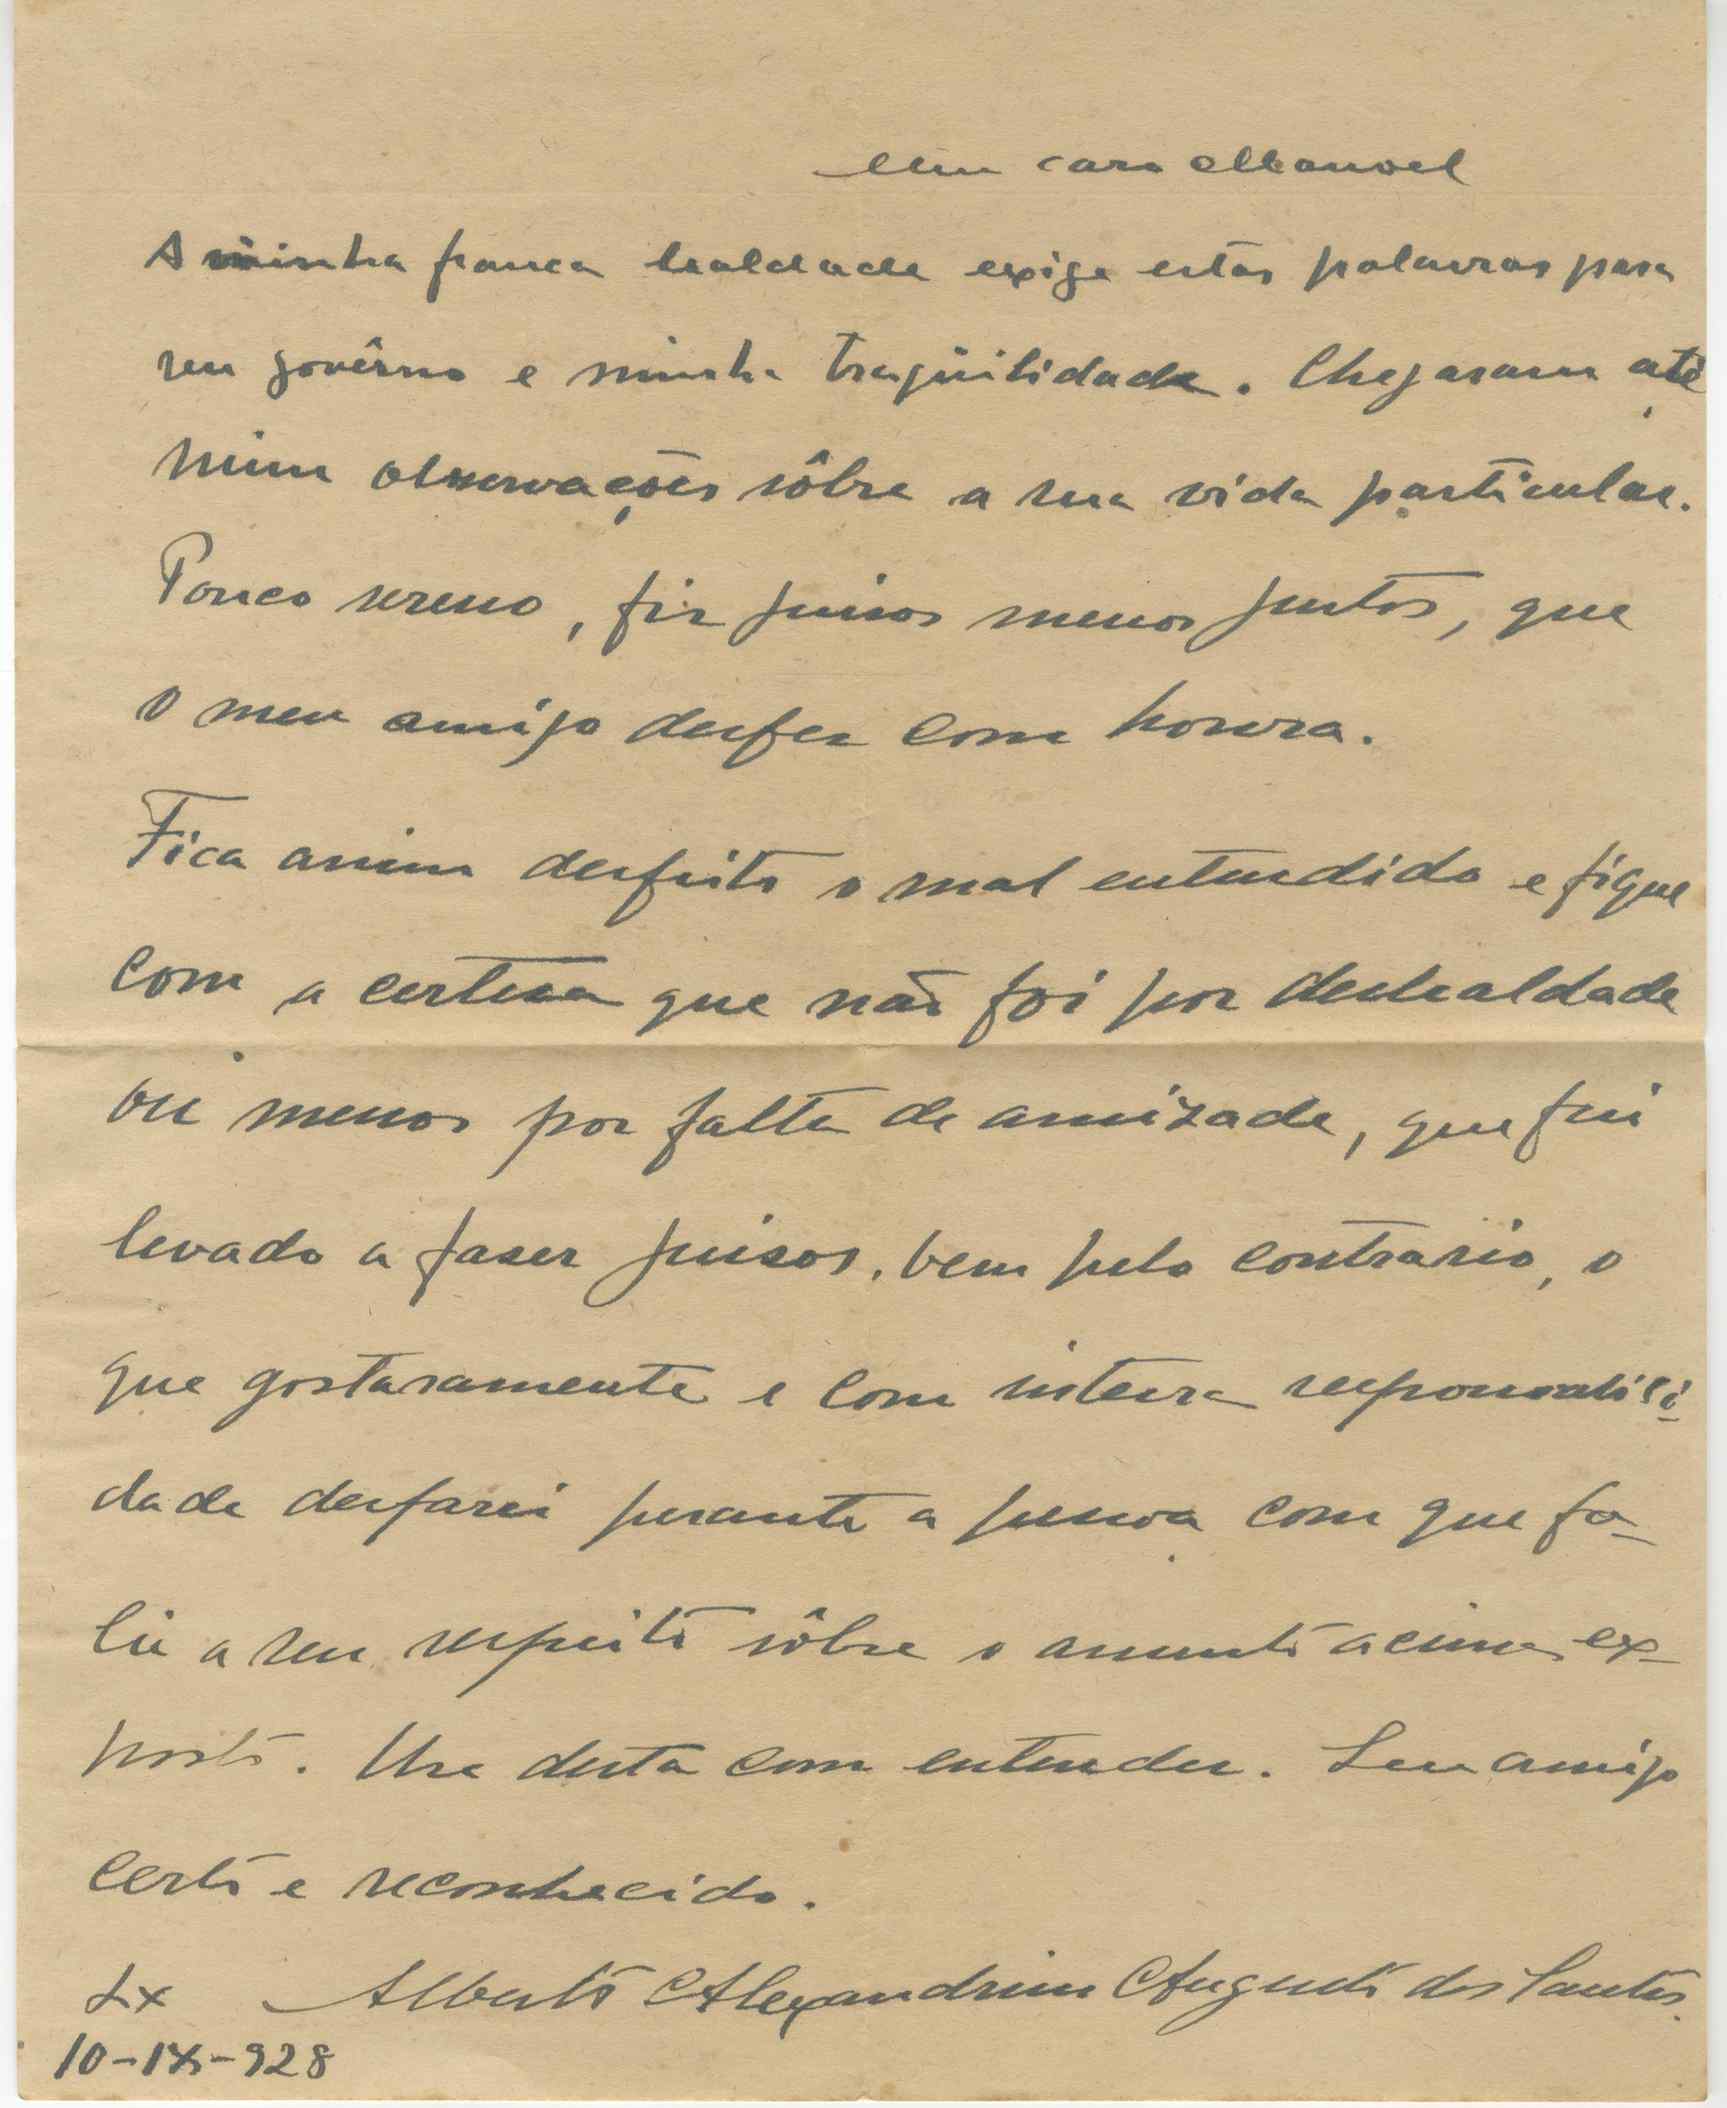 Meu caro Manoel
A minha franca lealdade exige estas palavras para
seu govêrno e minha traqüilidade. Chegaram até
mim observações sôbre a sua vida particular.
Pouco sereno, fiz juisos menos justos, que
o meu amigo desfez com honra.
Fica assim desfeito o mal entendido e fique
com a certesa que não foi por deslealdade
ou menos por falta de amizade, que fui
levado a faser juisos, bem pelo contrario, o
que gostosamente e com inteira responsabili
dade desfarei perante a pessoa com que fa-
lei a seu respeito sôbre o assunto acima ex-
posto. Use desta com entender. Seu amigo
certo e reconhecido.
Lx Alberto Alexandrim Augusto dos Santos.
10-IX-928